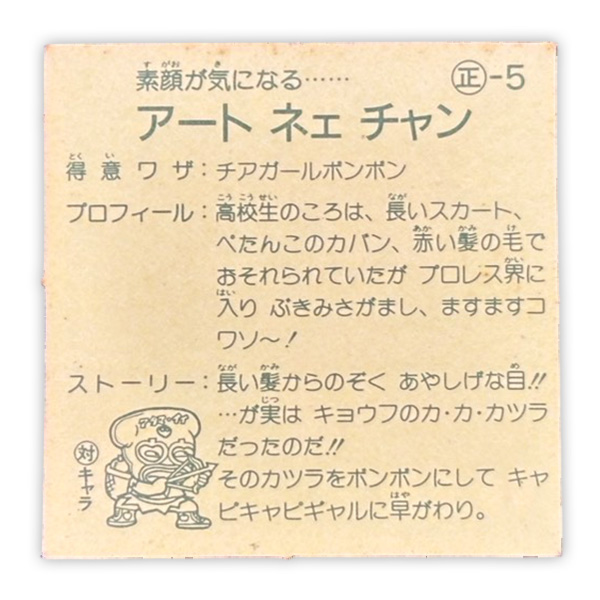 素顔が気になる……
正-5
アート ネェ チャン
得意ワザ:チアガールボンボン
プロフィール:高校生のころは、長いスカート、
ぺたんこのカバン、赤い髪の毛で
おそれられていたが プロレス界に
入り ぶきみさがまし、ますますコ
ワソ〜!
ストーリー:長い髪からのぞく あやしげな目!!
…が実は キョウフのカ・カ・カツラ
だったのだ!!
そのカツラをボンボンにして キャ
ピキャピギャルに早がわり。
対キャラ